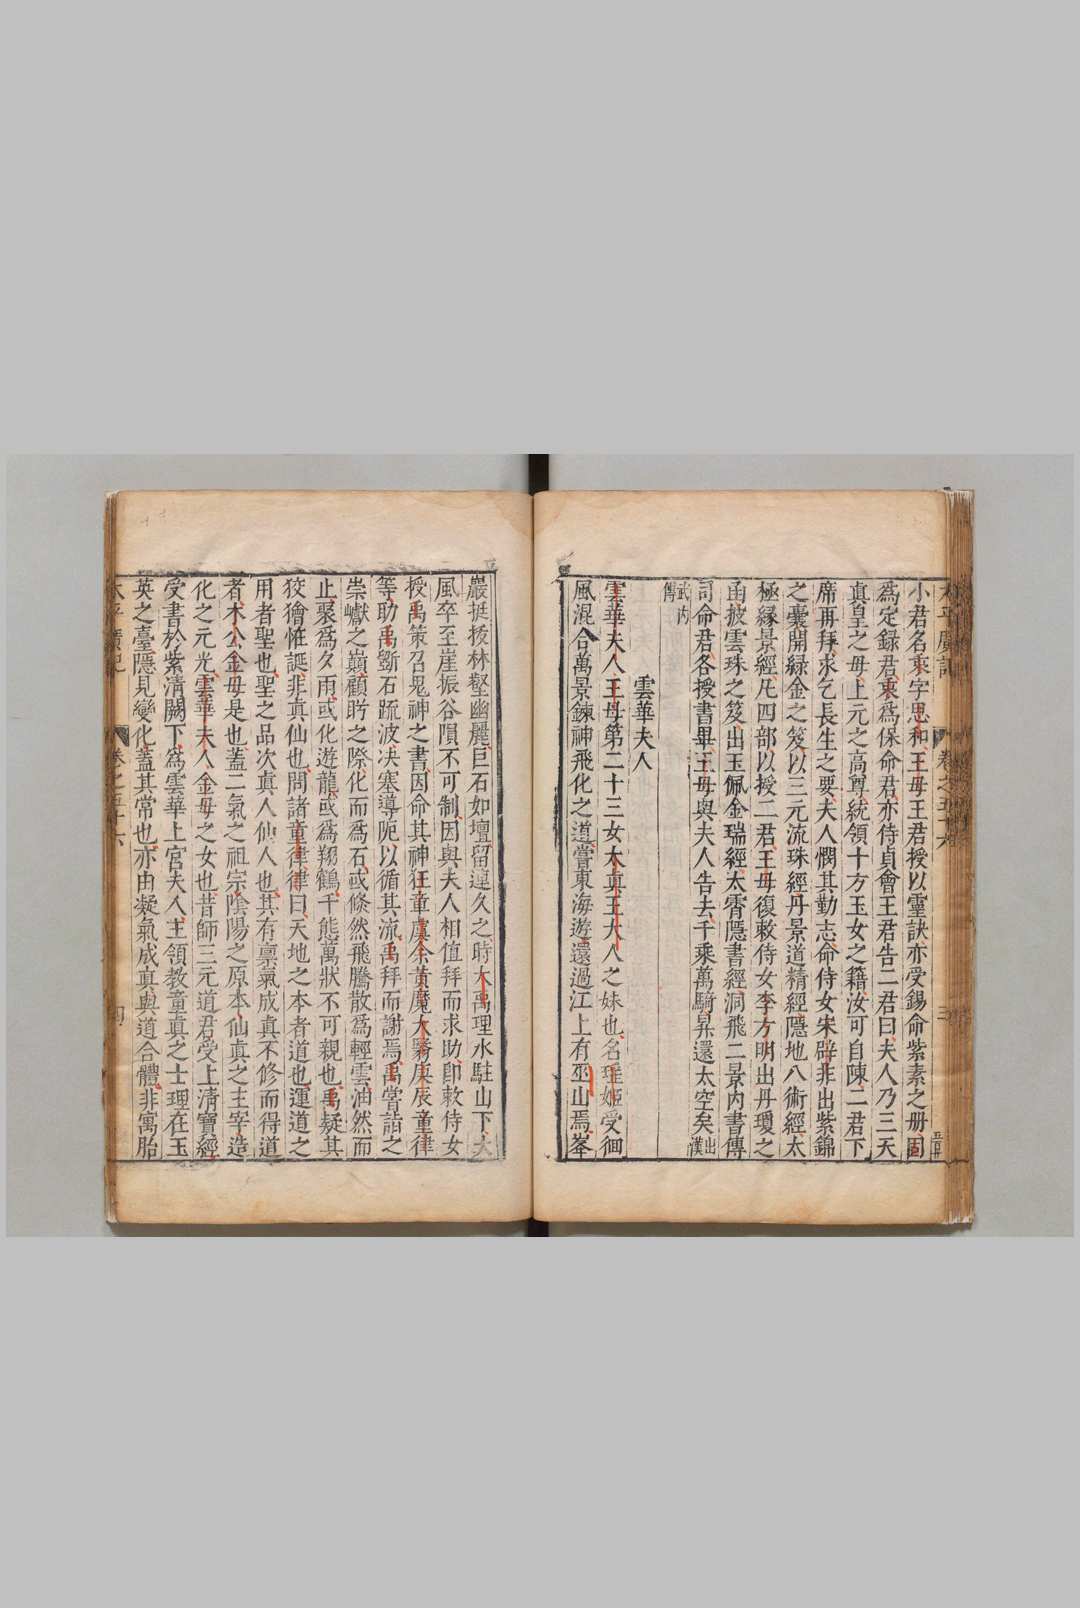 小君名衷字思和王母王君授以靈訣亦受錫命紫素之册固
爲定録君衷爲保命君亦侍貞會王君告二君曰夫人乃三天
真皇之母上元之高尊統領十方玉女之籍汝可自陳二君下
席再拜求乞長生之要夫人憫其勤志命侍女宋辟非出紫錦
之囊開緑金之笈以三元流珠經丹景道精經隱地八術經太
極緑景經凡四部以授二君王母復敕侍女李方明出丹瓊之
函披雲珠之笈出玉佩金瑞經太霄隱書經洞飛二景内書傳
司命君各授書畢王母與夫人告去千乘萬騎昇還太空矣出漢
武内傳
雲華夫人
雲華夫人王母第二十三女太真王夫人之妹也名瑤姬受徊
風混合萬景鍊神飛化之道嘗東海遊還過江上有巫山焉峯
巖挺拔林壑幽麗巨石如壇留連久之時大禹理水駐山下大
風卒至崖振谷隕不可制因與夫人相值拜而求助即敕侍女
授禹策召鬼神之書因命其神狂章虞余黄魔大翳庚辰童律
等助禹斵石疏波决塞導阨以循其流禹拜而謝焉禹嘗詣之
崇巘之巔顧盻之際化而爲石或倏然飛騰散爲輕雲油然而
止聚爲夕雨或化遊龍或爲翔鶴千態萬狀不可親也禹疑其
狡獪恠誕非真仙也問諸童律律曰天地之本者道也運道之
用者聖也聖之品次真人仙人也其有禀氣成真不修而得道
者木公金母是也蓋二氣之祖宗陰陽之原本仙真之主宰造
化之元光雲華夫人金母之女也昔師三元道君受上清寶經
受書於紫清闕下爲雲華上宫夫人主領教童真之士理在玉
英之臺隱見變化蓋其常也亦由凝氣成真與道合體非寓胎
太平廣記
卷之五十六
四